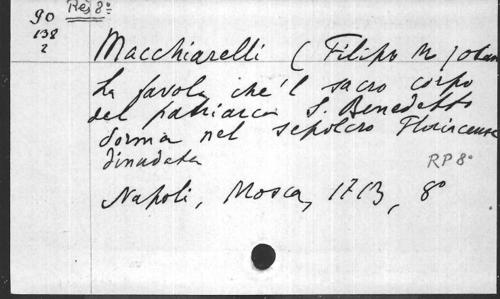 Rés 8°
90
138
2
Macchiarelli (Filipo M
La favola che'l sacro corpo
del patriarca S. Benedetto
dorma nel sepolcro Floriacense
dinudata
RP 8°
Napoli, Mosca, 1713, 8°